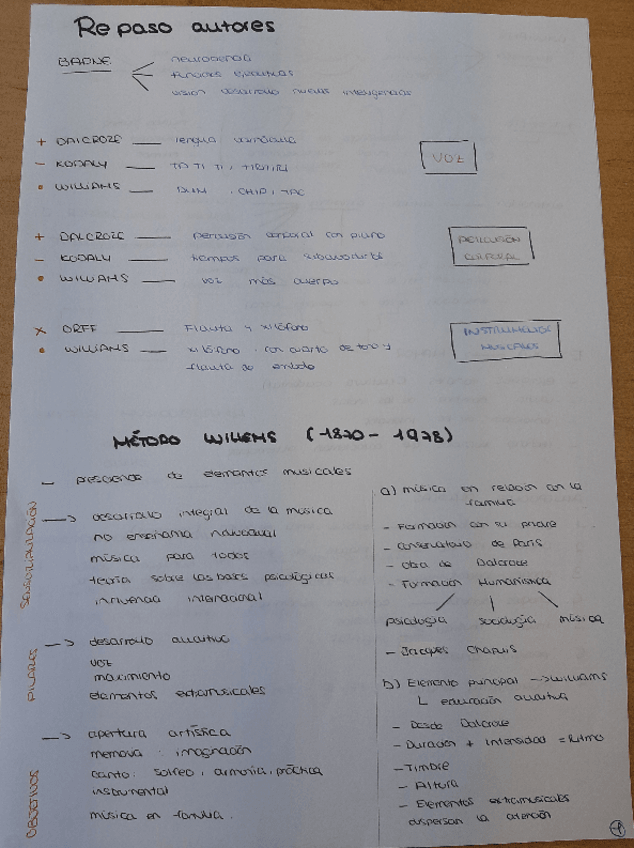 Repaso autores
BAPNE
neurociencia
funciones ejecutivas
visión desarrollo nuevas inteligencias
+ DALCROZE — lengua vernácula
- KODALY — TA TI TI, TIRITIRI
• WILLIAMS — DUM, CHIP, TAC
VOZ
+ DALCROZE — percusión corporal con piano
- KODALY — tiempos para
• WILLIAMS — voz más cuerpo
PERCUSIÓN
CORPORAL
x ORFF — Flauta y xilófono
• WILLIAMS — xilófono con cuarto de tono y
flauta de émbolo
INSTRUMENTOS
MUSICALES
MÉTODO WILLEMS (-1890 - 1978)
- prescinde de elementos extramusicales
SENSORIALIZACIÓN
—> desarrollo integral de la música
no enseñanza individual
música para todos
teoría sobre las bases psicológicas
influencia internacional
PILARES
—> desarrollo auditivo
voz
movimiento
elementos extramusicales
OBJETIVOS
—> apertura artística
memoria imaginación
canto, solfeo, armonía, práctica
instrumental
música en familia.
a) música en relación con la
familia
- Formación con su padre
- Conservatorio de París
- Obra de Dalcroze
- Formación Humanística
psicología sociología música
- Jacques Chapuis
b) Elemento principal —> Williams
L educación auditiva
- Desde Dalcroze
- Duración + intensidad = Ritmo
- Timbre
- Altura
- Elementos extramusicales
dispersan la atención